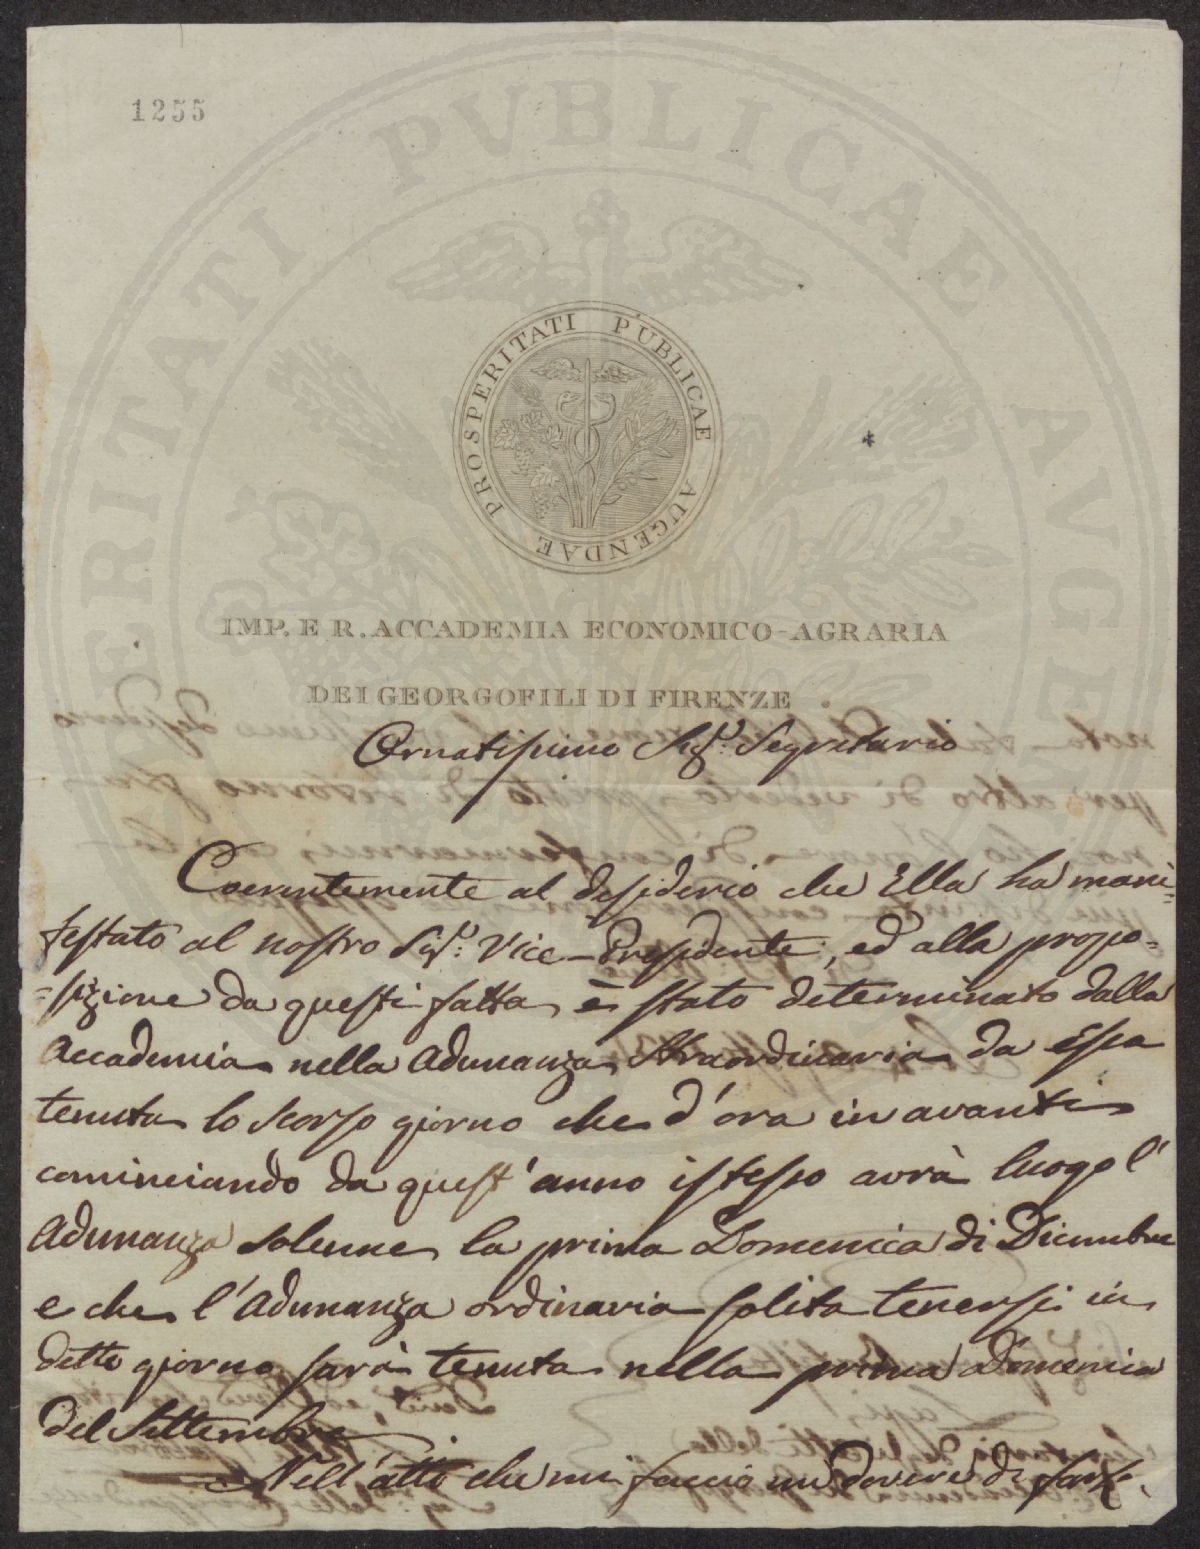 1255
PROSPERITATI PUBLICAE AUGENDAE
IMP. E R. ACCADEMIA ECONOMICO-AGRARIA
DEI GEORGOFILI DI FIRENZE
Ornatissimo Sigr. Segretario
Coerentemente al desiderio che Ella ha mani=
festato al nostro Sigr. Vice-Presidente, ed alla propo=
=sizione da questi fatta, è stato determinato dalla
Accademia nella Adunanza Straordinaria da Essa
tenuta lo scorso giorno che d'ora in avanti
cominciando da quest'anno istesso avrà luogo l'
Adunanza solenne la prima Domenica di Dicembre
e che l'Adunanza ordinaria solita tenersi in
detto giorno sarà tenuta nella prima Domenica
del Settembre.
Nell'atto che mi faccio un dovere di far